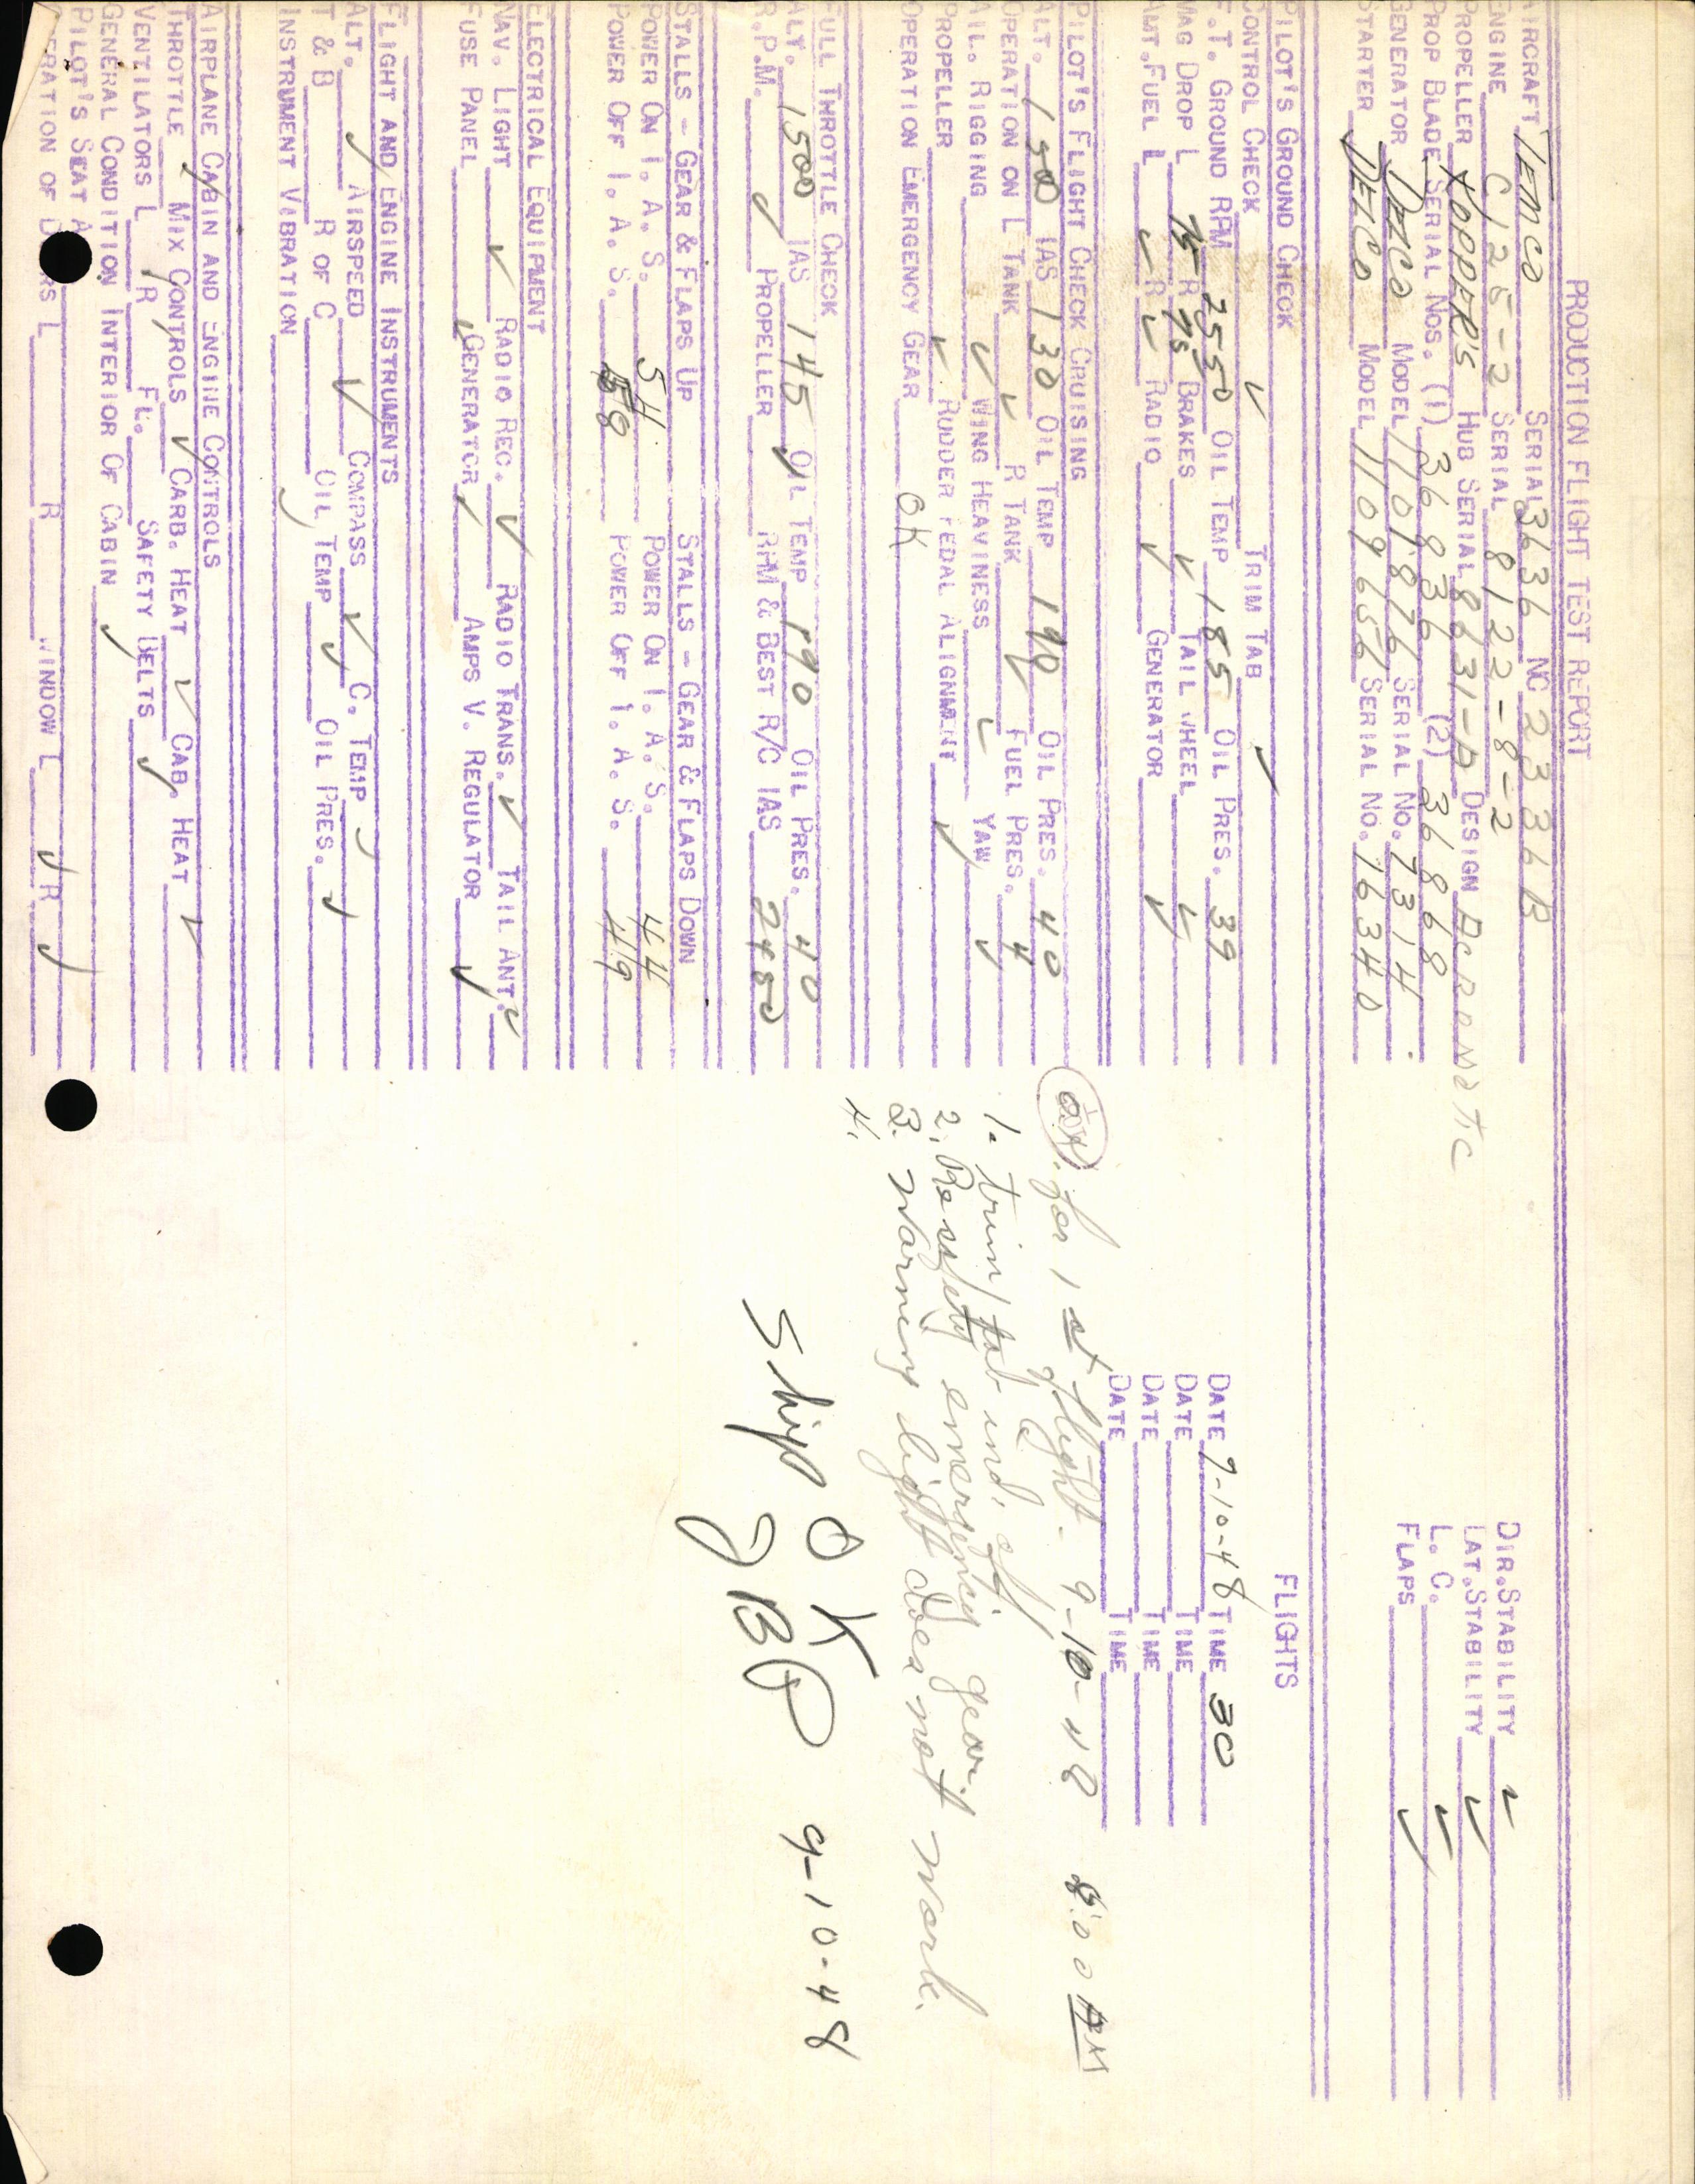 PRODUCTION FLIGHT TEST REPORT
AIRCRAFT TEMCO SERIAL 3636 NC 23336B
ENGINE C125-2 SERIAL 8122-8-2 DIR.STABILITY ✓
PROPELLER KOPPERS HUB SERIAL 8631-P DESIGN AEROMATIC LAT.STABILITY ✓
PROP BLADE SERIAL NOS. (1) 36836 (2) 36868 L. C. ✓
GENERATOR DELCO MODEL 1101876 SERIAL NO. 7314 FLAPS ✓
STARTER DELCO MODEL 1109656 SERIAL NO. 76340
PILOT'S GROUND CHECK
FLIGHTS
CONTROL CHECK ✓ TRIM TAB ✓
F.T. GROUND RPM 2550 OIL TEMP 185 OIL PRES. 39 DATE 9-10-48 TIME 30
MAG DROP L 75 R 75 BRAKES ✓ TAIL WHEEL ✓ DATE TIME
AMT.FUEL L ✓ R ✓ RADIO ✓ GENERATOR ✓ DATE TIME
DATE TIME
PILOT'S FLIGHT CHECK CRUISING
ALT. 1500 IAS 130 OIL TEMP 190 OIL PRES. 40
OPERATION ON L TANK ✓ R TANK ✓ FUEL PRES. 4
AIL. RIGGING ✓ WING HEAVINESS ✓ YAW ✓
PROPELLER ✓ RUDDER PEDAL ALIGNMENT ✓
OPERATION EMERGENCY GEAR OK
OK for 1st flight - 9-10-48 8:00 AM
1. trim tab ind. off.
2. Resafety emergency gear.
3. Warning light does not work.
4.
FULL THROTTLE CHECK
ALT. 1500 IAS 145 OIL TEMP 190 OIL PRES. 40
R.P.M. ✓ PROPELLER RPM & BEST R/C IAS 2450
Ship OK 9-10-48
STALLS - GEAR & FLAPS UP STALLS - GEAR & FLAPS DOWN
POWER ON I. A. S. 54 POWER ON I. A. S. 44
POWER OFF I. A. S. 58 POWER OFF I. A. S. 49
ELECTRICAL EQUIPMENT
NAV. LIGHT ✓ RADIO REC. ✓ RADIO TRANS. ✓ TAIL ANT. ✓
FUSE PANEL ✓ GENERATOR ✓ AMPS V. REGULATOR ✓
FLIGHT AND ENGINE INSTRUMENTS
ALT. ✓ AIRSPEED ✓ COMPASS ✓ C. TEMP ✓
T & B R OF C OIL TEMP ✓ OIL PRES. ✓
INSTRUMENT VIBRATION ✓
AIRPLANE CABIN AND ENGINE CONTROLS
THROTTLE ✓ MIX CONTROLS ✓ CARB. HEAT ✓ CAB. HEAT ✓
VENTILATORS L R FL. SAFETY BELTS ✓
GENERAL CONDITION INTERIOR OF CABIN ✓
PILOT'S SEAT
OF DOORS L R WINDOW L ✓ R ✓